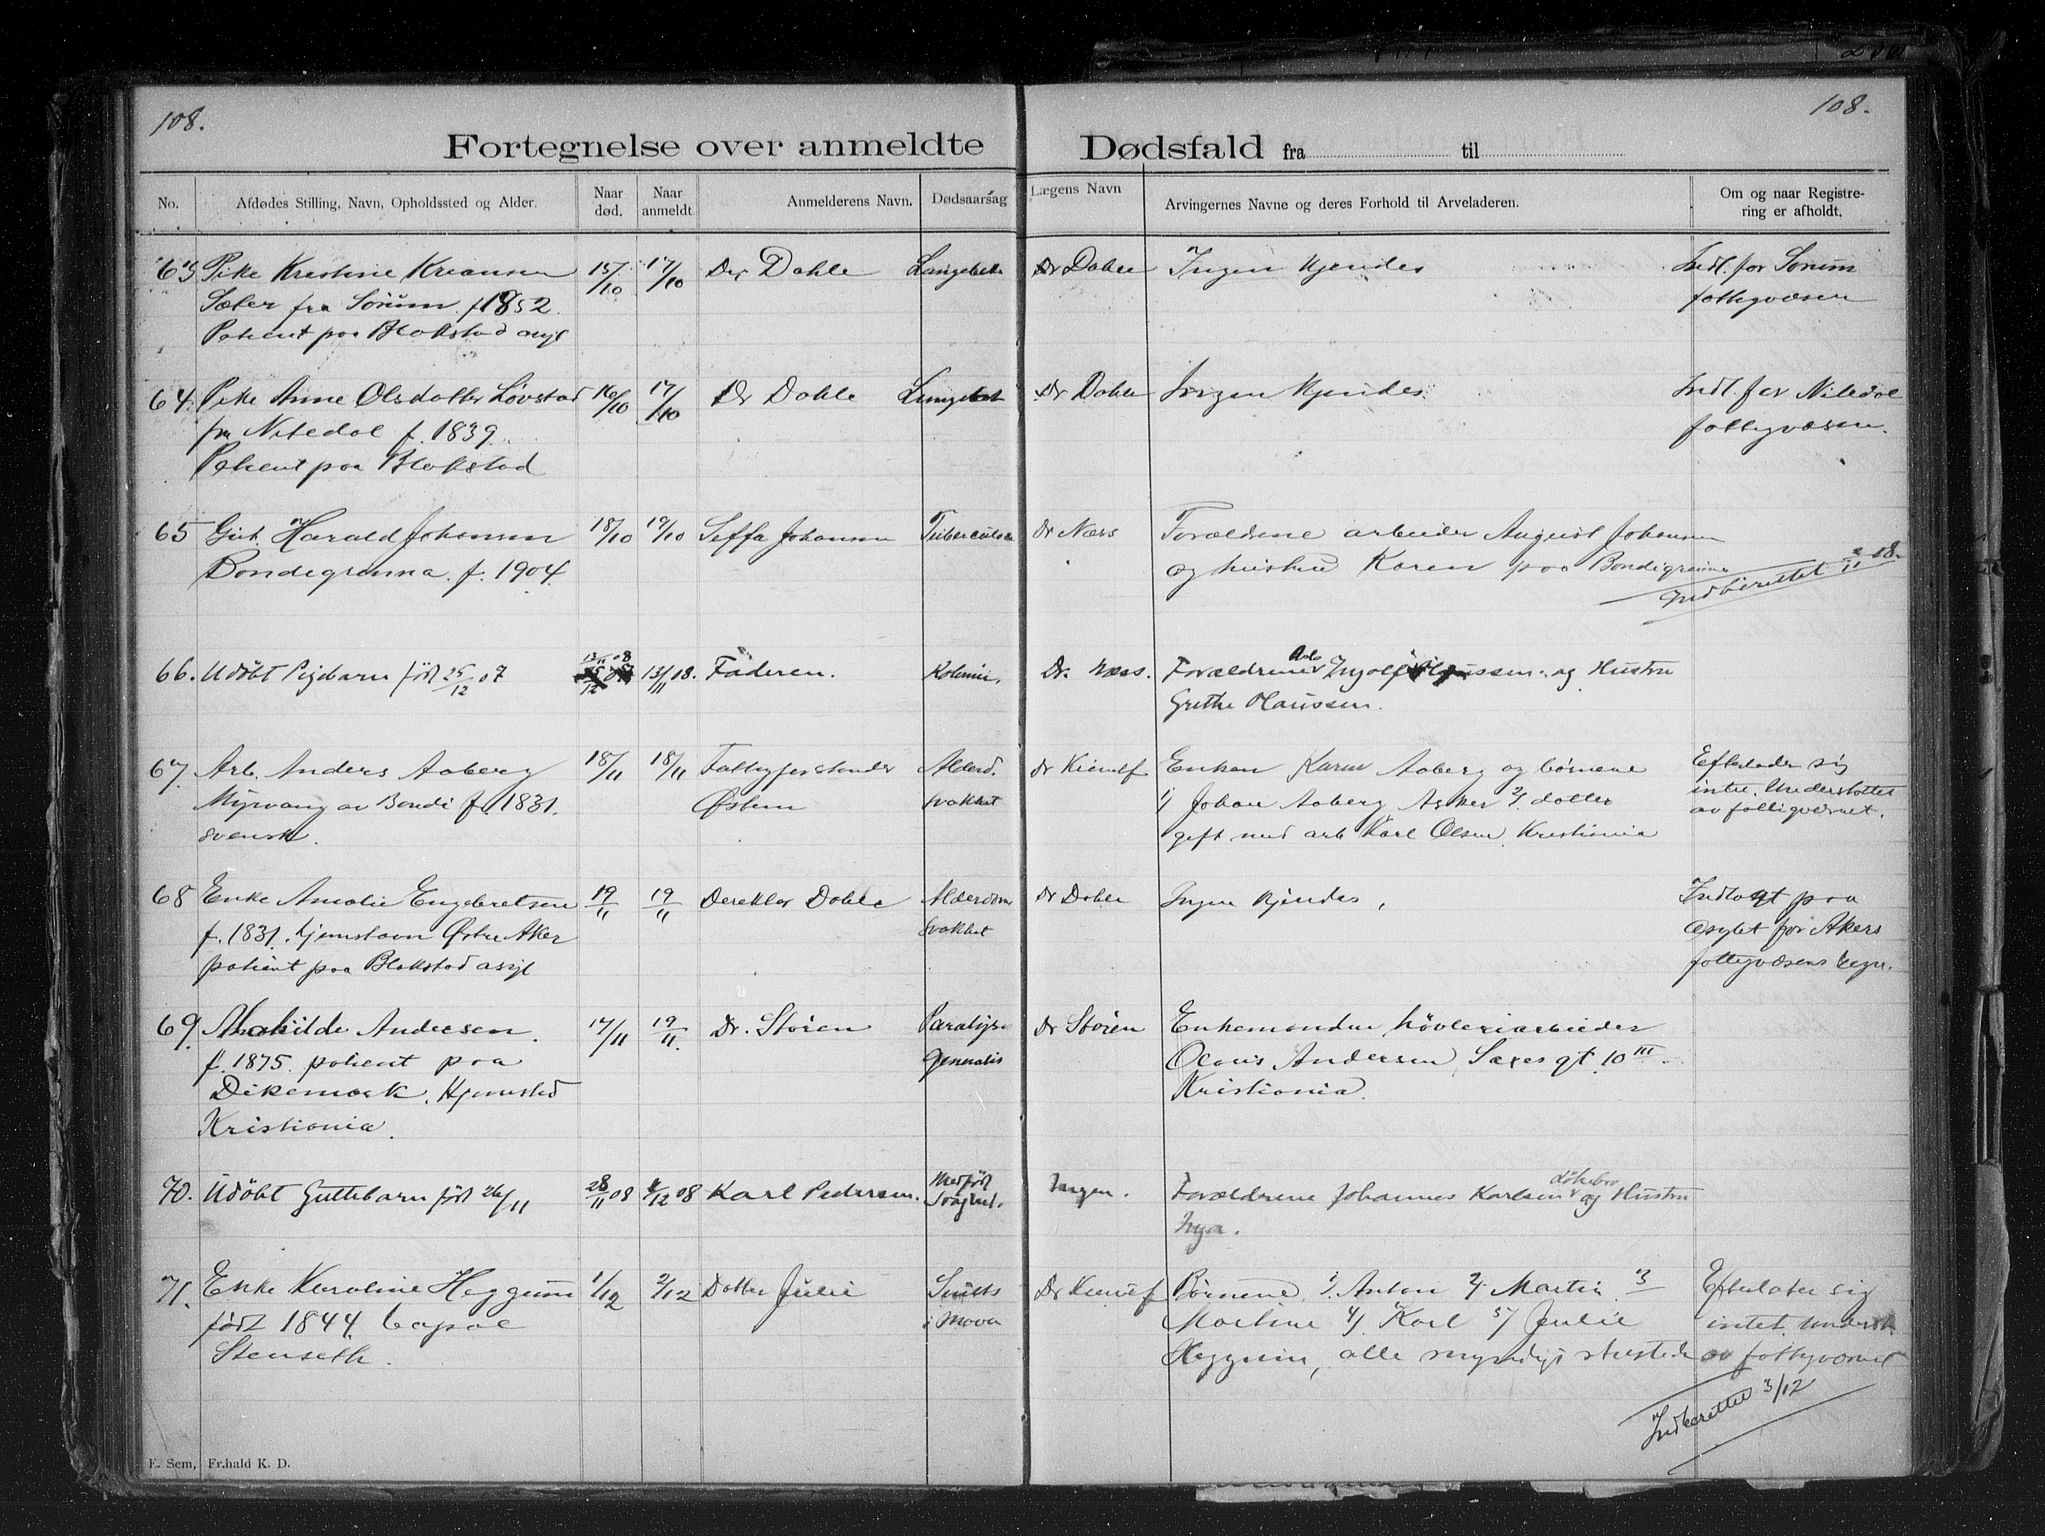 108.
108.
Fortegnelse over anmeldte Dødsfald fra til
No.
Afdødes Stilling, Navn, Opholdssted og Alder.
Naar død.
Naar anmeldt
Anmelderens Navn.
Dødsaarsag
Lægens Navn
Arvingernes Navne og deres Forhold til Arveladeren.
Om og naar Registre-
ring er afholdt.
63 Pike Kristine Kriansen 15/10 17/10 Dr Dahle Dr Dahle Ingen kjendes Indl. for Sørum
Sæter fra Sørum f. 1852. fattigvæsen
Patient paa Blakstad asyl
64. Pike Anne Olsdatter Løvstad 16/10 17/10 Dr Dahle Dr Dahle Ingen kjendes Indl. for Nitedal
fra Nitedal f. 1839 fattigvæsen.
Patient paa Blakstad
65 Gut. Harald Johansen 18/10 19/10 Johansen Tuberculose Dr Næss Forældrene arbeider August Johansen
Bondegrenna. f. 1904 og hustru Karen paa Bondigrenna
Indberettet
66. Udöbt Pigebarn født 25/12 07 13/11 08 13/11 08. Faderen. Dr. Næss. Forældrene Arb Ingolf Olaussen og Hustru
Grethe Olaussen.
67. Arb. Anders Aaberg 18/11 18/11 Fattigforstander Alderd. Dr Kierulf Enken Karen Aaberg og børnene Efterlader sig
Myrvang av Bondi f. 1831. Østern svakhet 1/ Johan Aaberg Asker 2/ datter intet. Understøttet
svensk. gift med arb Karl Olsen Kristiania av fattigvæsnet.
68 Enke Amalie Engebretsen 19/11 19/11 Direktør Dahle Alderdoms Dr Dahle Ingen kjendes, Indlagt paa
f. 1831. hjemstavn Østre Aker svakhet asylet for Akers
patient paa Blakstad asyl fattigvæsens regn.
69. Mathilde Andersen. 17/11 19/11. Dr. Støren Paralyse Dr Støren Enkemanden, høvleriarbeider
f. 1875. patient paa generalis Olaus Andersen Saxesgt 10 III
Dikemark. Hjemsted Kristiania.
Kristiania.
70. Udöbt Guttebarn født 26/11 28/11 08 /12 08 Karl Pedersen. Medfødt Svaghed. Ingen. Forældrene Johannes Karlsen og Hustru
Inga.
71. Enke Karoline Heggum 1/12 2/12 Datter Julie Dr Kierulf Børnene 1/ Anton 2/ Martin 3 Efterlater sig
født 1844. i Maven Martine 4/ Karl 5/ Julie intet. underst.
Stenseth. Heggum, alle myndige av fattigvæsnet
Indberettet 3/12
E. Sem, Fr.hald K. D.